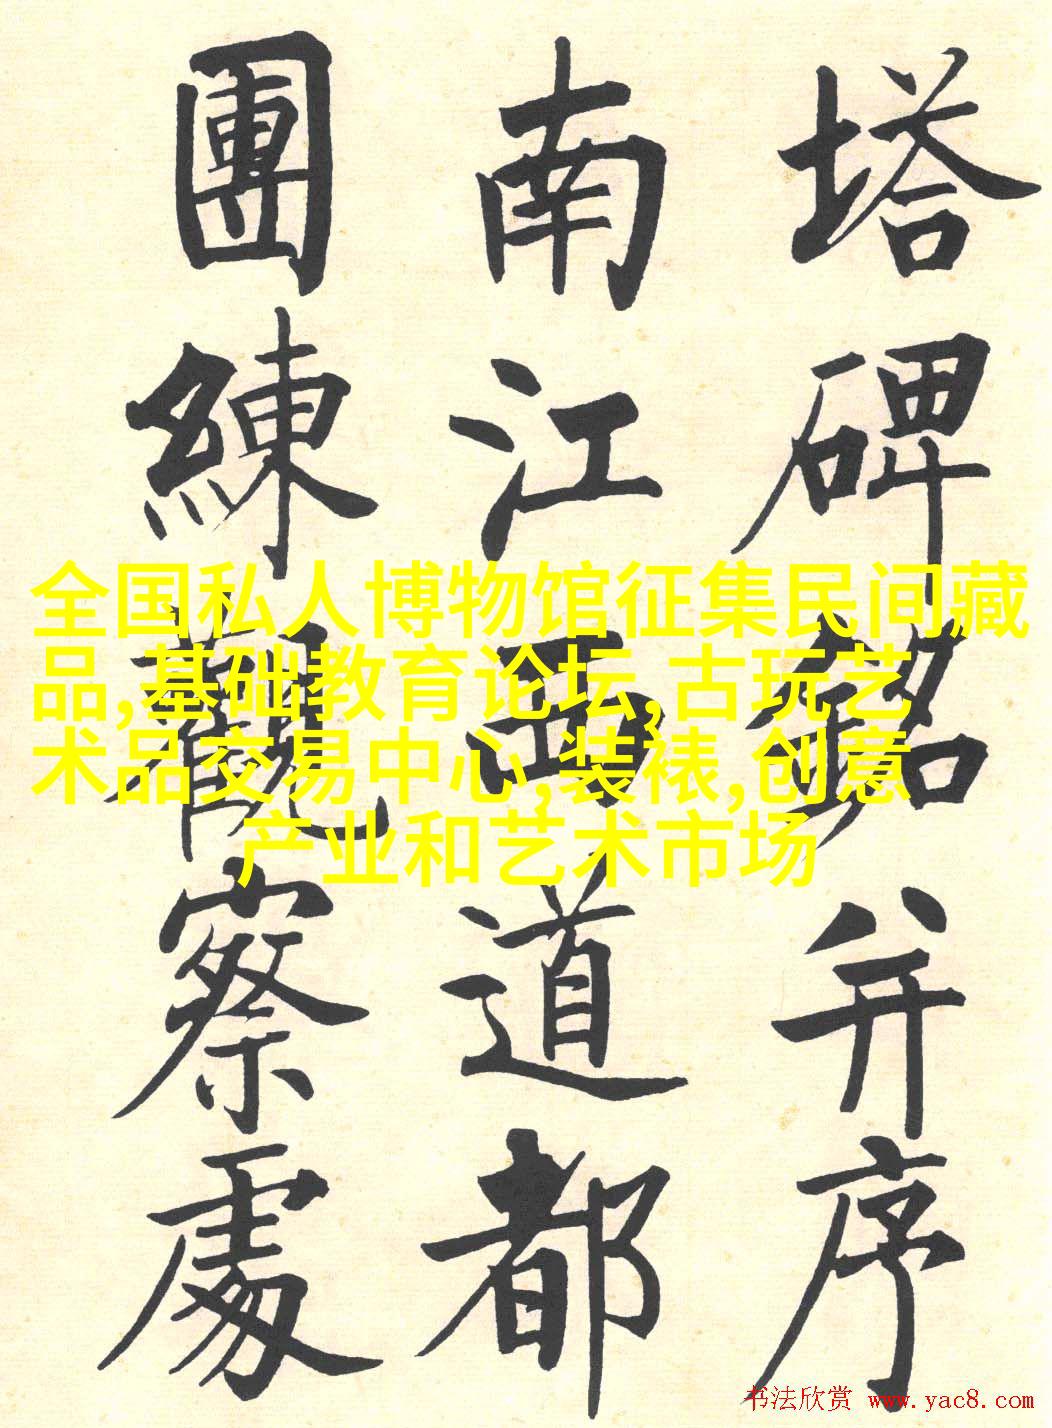 塔碑銘并序
南江西道都
團練觀察處
全国私人博物馆征集民间藏
品,基础教育论坛,古玩艺
术品交易中心,装裱,创意
产业和艺术市场
书法欣赏 www.yac8.com